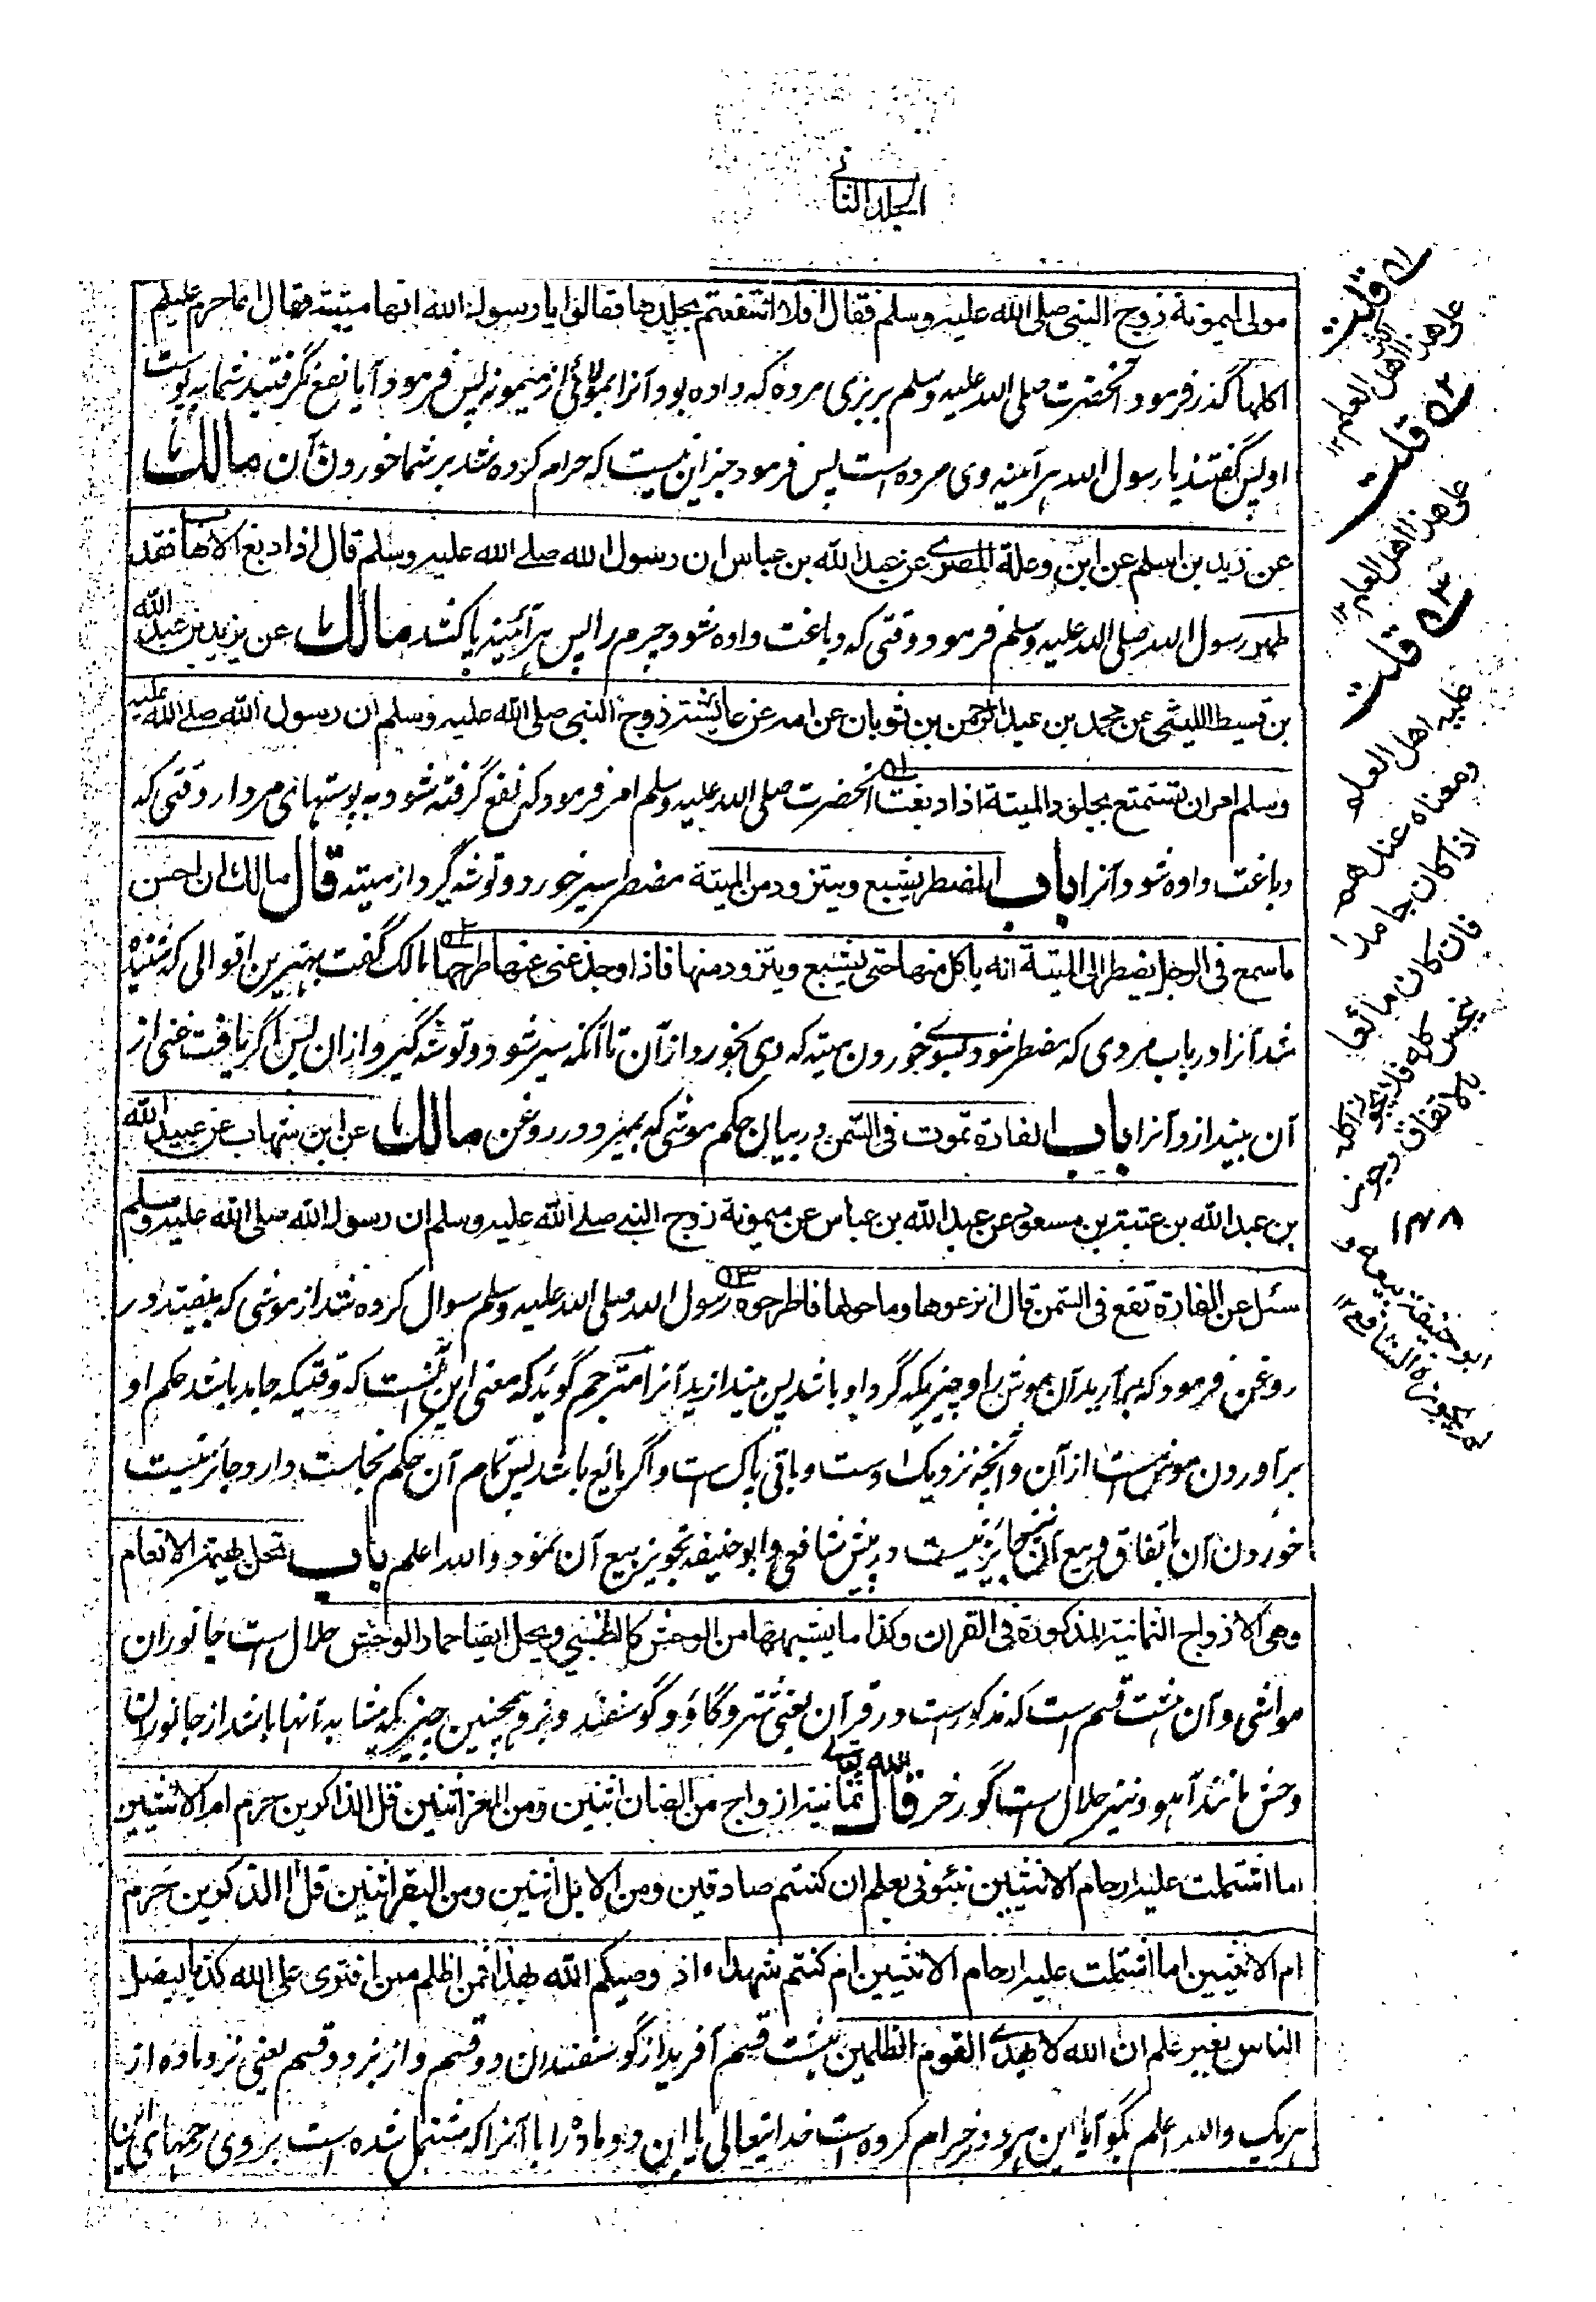 الجلد الثانی
مولی لمیمونة زوج النبی صلی الله علیه وسلم فقال افلا انتفعتم بجلدها فقالوا یا رسول الله انها میتة فقال انما حرم علیکم
اکلها گذر فرمود آنحضرت صلی الله علیه وسلم بر بزی مرده که داده بود آنرا بمولائی از میمونه پس فرمود آیا نفع نگرفتید شما به پوست
او پس گفتند یا رسول الله هر آئینه وی مرده است پس فرمود جز این نیست که حرام کرده شد بر شما خوردن آن مالك
عن زید بن اسلم عن ابن وعلة المصری عن عبد الله بن عباس ان رسول الله صلی الله علیه وسلم قال اذا دبغ الاهاب فقد
طهر رسول الله صلی الله علیه وسلم فرمود وقتی که دباغت داده شود چرم را پس هر آئینه پاک شد مالك عن یزید بن عبد الله
بن قسیط اللیثی عن محمد بن عبد الرحمن بن ثوبان عن امه عن عایشة زوج النبی صلی الله علیه وسلم ان رسول الله صلی الله علیه
وسلم امر ان یستمتع بجلود المیتة اذا دبغت ۵۱ آنحضرت صلی الله علیه وسلم امر فرمود که نفع گرفته شود به پوستهای مردار وقتی که
دباغت داده شود آنرا باب المضطر یشبع ویتزود من المیتة مضطر سیر خورد و توشه گیرد از میته قال مالك ان احسن
ما سمع فی الرجل یضطر الی المیتة انه یاکل منها حتی یشبع ویتزود منها فاذا وجد غنی عنها طرحها ۵۲ مالک گفت بهترین اقوالی که شنیده
شد آنرا در باب مردی که مضطر شود بسوی خوردن میته که وی بخورد از آن تا آنکه سیر شود و توشه گیرد از ان پس اگر یافت غنی از
آن بیندازد آنرا باب الفارة تموت فی السمن در بیان حکم موشی که بمیرد در روغن مالك عن ابن شهاب عن عبید الله
بن عبد الله بن عتبة بن مسعود عن عبد الله بن عباس عن میمونة زوج النبی صلی الله علیه وسلم ان رسول الله صلی الله علیه وسلم
سئل عن الفارة تقع فی السمن قال انزعوها وما حولها فاطرحوه ۵۳ رسول الله صلی الله علیه وسلم سوال کرده شد از موشی که بیفتد در
روغن فرمود که برآرید آن موش را و چیزیکه گرد او باشد پس بیندازید آنرا مترجم گوید که معنی این آنست که وقتیکه جامد باشد حکم او
برآوردن موش است از آن و آنچه نزدیک اوست و باقی پاک ست و اگر مائع باشد پس تمام آن حکم نجاست دارد جائز نیست
خوردن آن باتفاق و بیع آن نیز جایز نیست در پیش شافعی و ابو حنیفه تجویز بیع آن نمود والله اعلم باب تحل بهیمة الانعام
وهی الازواج الثمانیة المذکورة فی القران وکذا ما یشبهها من الوحش کالظبی ویحل ایضا حمار الوحش حلال ست جانوران
مواشی و آن هشت قسم است که مذکور ست در قرآن یعنی شتر و گاو و گوسفند و بز و همچنین چیزیکه مشابه آنها باشد از جانوران
وحش مانند آهو و نیز حلال ست گورخر قال الله تعالی ثمانیة ازواج من الضان اثنین ومن المعز اثنین قل الذاکرین حرم ام الانثیین
اما اشتملت علیه ارحام الانثیین نبئونی بعلم ان کنتم صادقین ومن الابل اثنین ومن البقر اثنین قل االذکرین حرم
ام الانثیین اما اشتملت علیه ارحام الانثیین ام کنتم شهداء اذ وصیکم الله بهذا فمن اظلم ممن افتری علی الله کذبا لیضل
الناس بغیر علم ان الله لا یهدی القوم الظلمین هشت قسم آفرید از گوسفندان دو قسم و از بز دو قسم یعنی نر و ماده از
هر یک والله اعلم بگو آیا این هر دو نر حرام کرده است خدایتعالی یا این دو ماده را یا آنرا که مشتمل شده است بر وی رحمهای این
۵۱ قلت
علی هذا اکثر اهل العلم ۱۲
۵۲ قلت
علی هذا اهل العلم ۱۲
۵۳ قلت
علیه اهل العلم
ومعناه عندهم
اذا کان جامدا
فان کان مائعا
ینجس کله فلا یجوز اکله
بالاتفاق وجوز
ابو حنیفة بیعه و
لم یجوزه الشافعی ۱۲